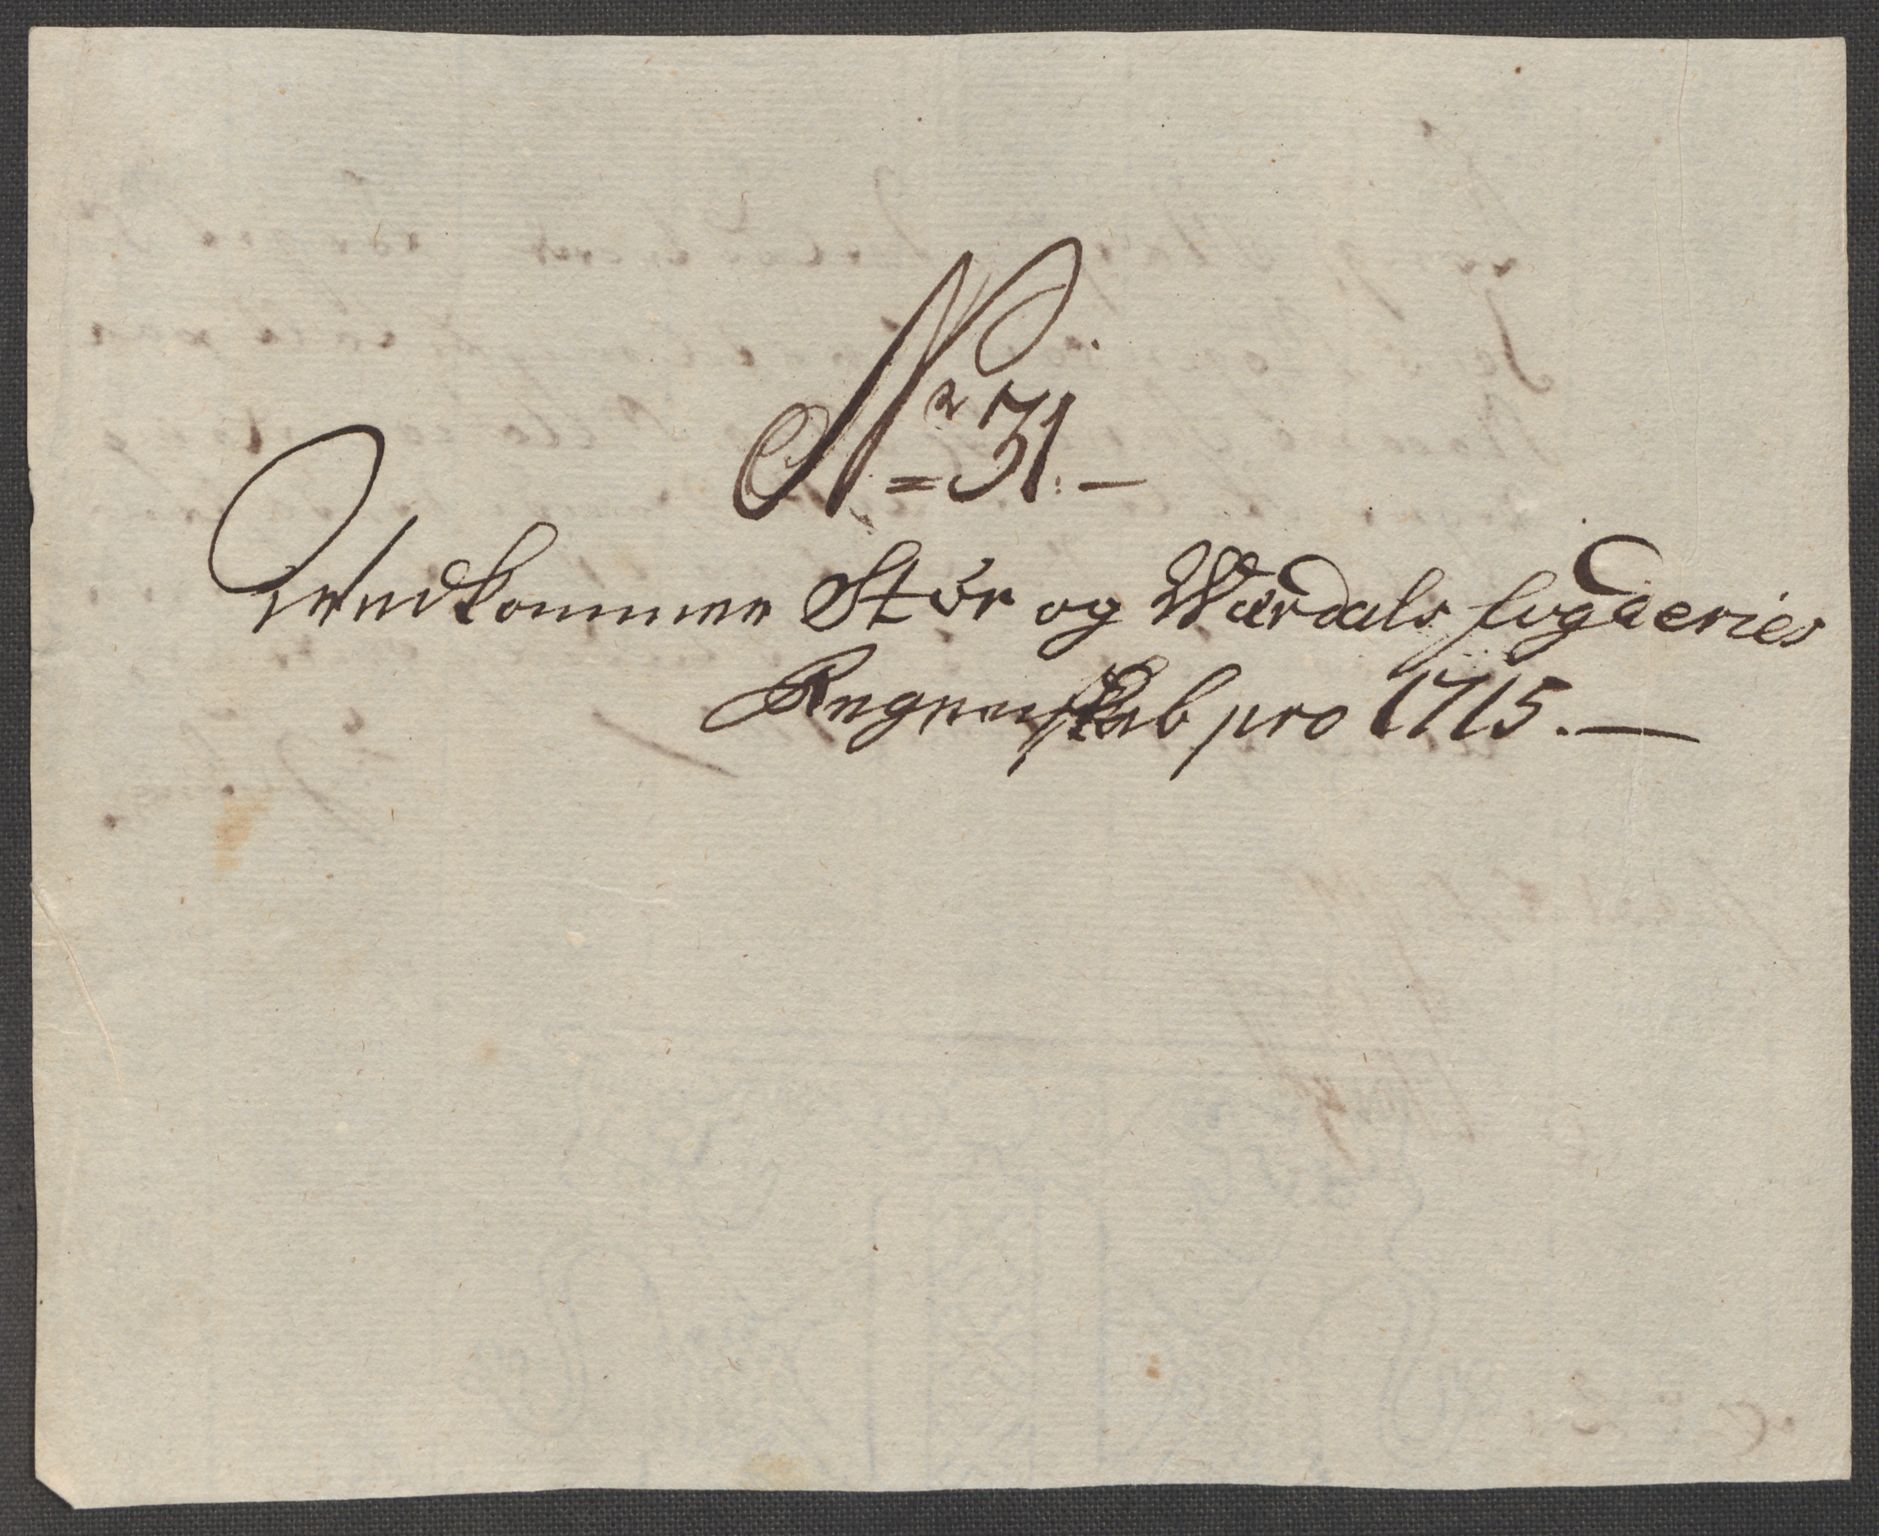 Nr 31.
Vedkommer Stör og Wærdals fogderies
Regnenskab pro 1715.